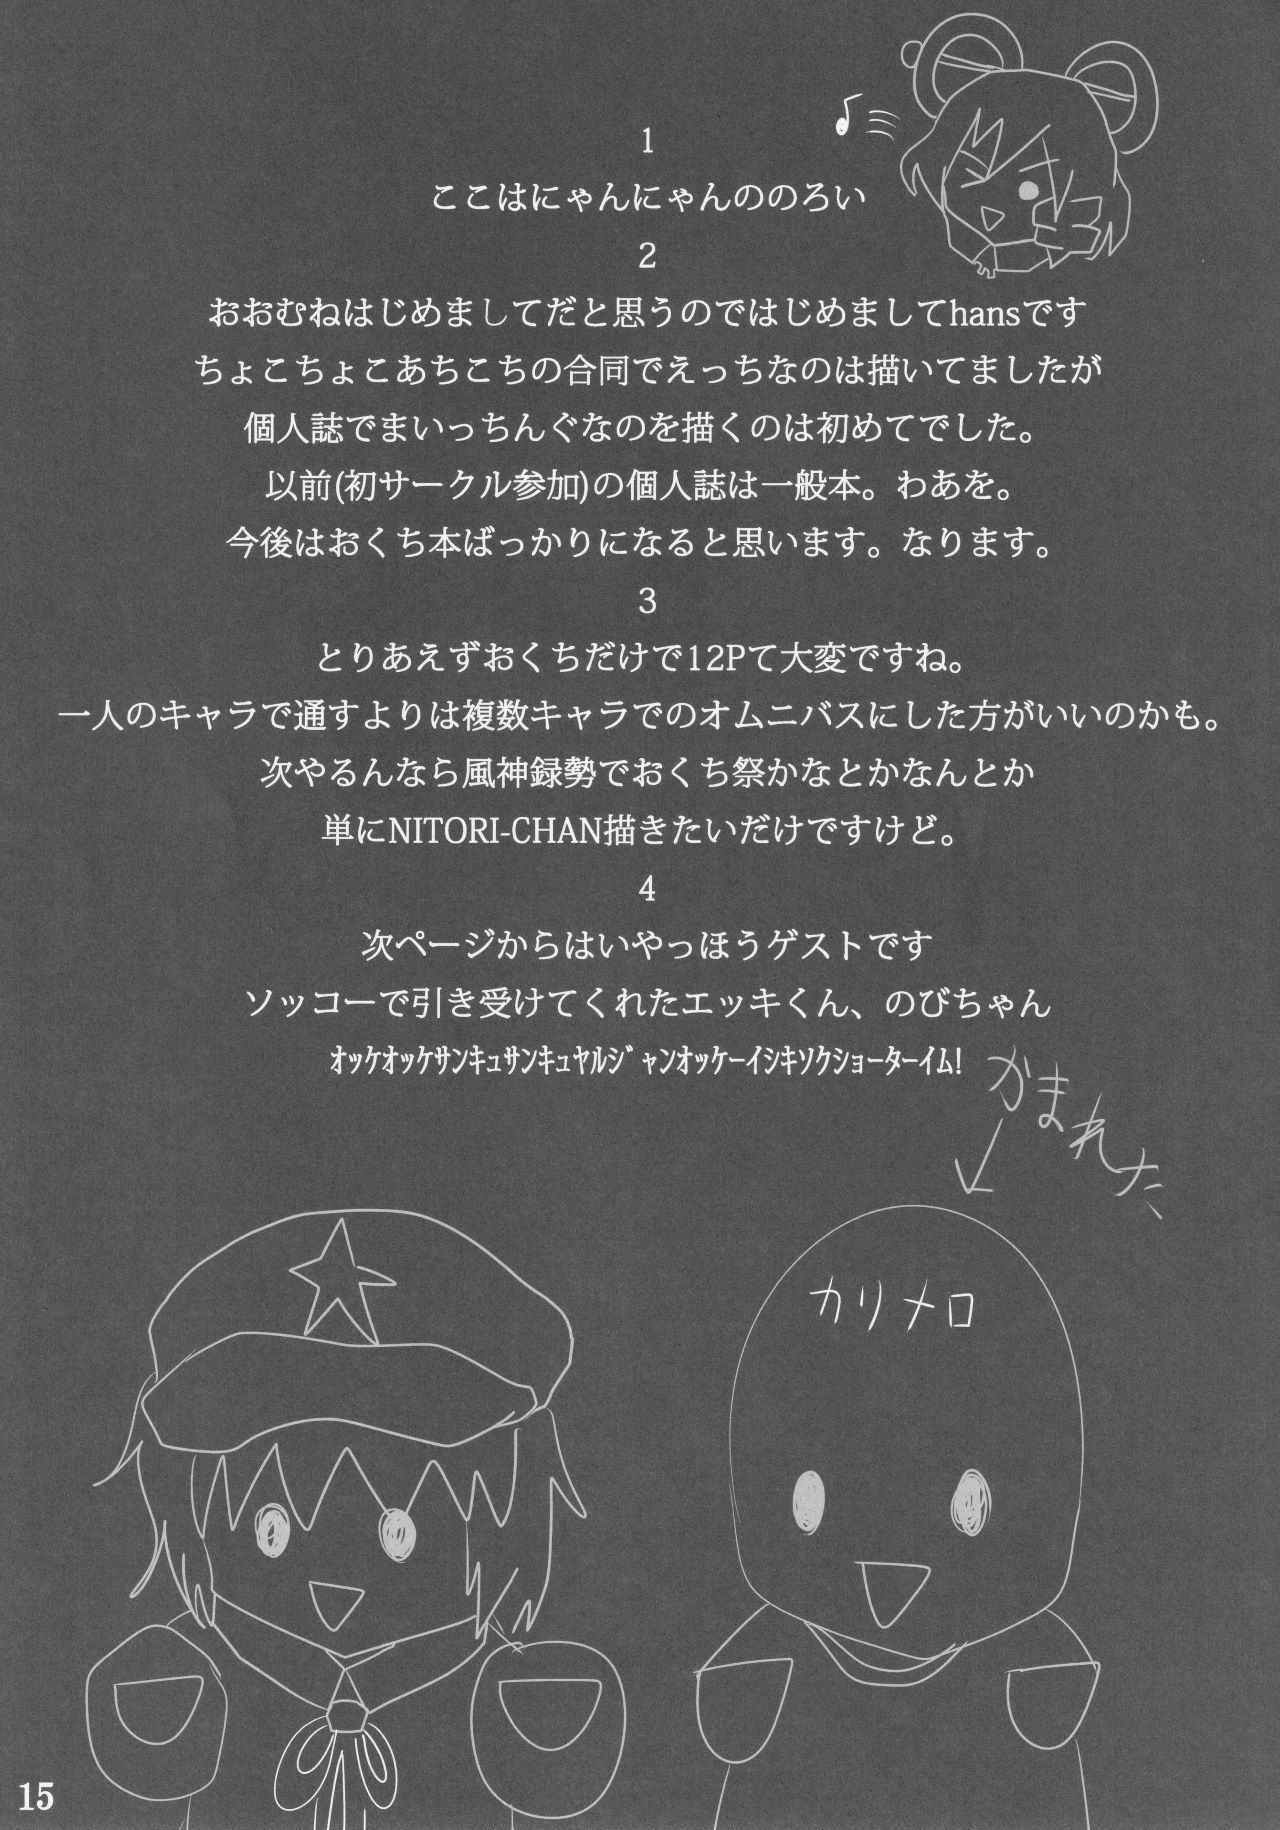 1
ここはにゃんにゃんののろい
2
おおむねはじめましてだと思うのではじめましてhansです
ちょこちょこあちこちの合同でえっちなのは描いてましたが
個人誌でまいっちんぐなのを描くのは初めてでした。
以前(初サークル参加)の個人誌は一般本。わあを。
今後はおくち本ばっかりになると思います。なります。
3
とりあえずおくちだけで12Pて大変ですね。
一人のキャラで通すよりは複数キャラでのオムニバスにした方がいいのかも。
次やるんなら風神録勢でおくち祭かなとかなんとか
単にNITORI-CHAN描きたいだけですけど。
4
次ページからはいやっほうゲストです
ソッコーで引き受けてくれたエッキくん、のびちゃん
ｵｯｹｵｯｹｻﾝｷｭｻﾝｷｭﾔﾙｼﾞｬﾝｵｯｹｰｲｼｷｿｸｼｮｰﾀｰｲﾑ!
かまれた
カリメロ
15